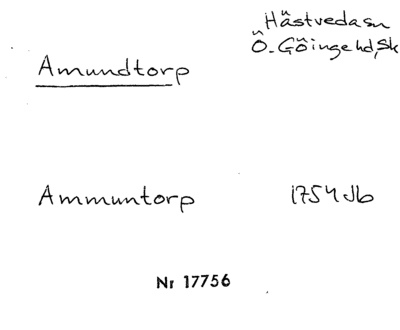 Hästvedasn
Ö. Göingehd, Sk
Amundtorp
Ammuntorp 1754 Jb
Nr 17756